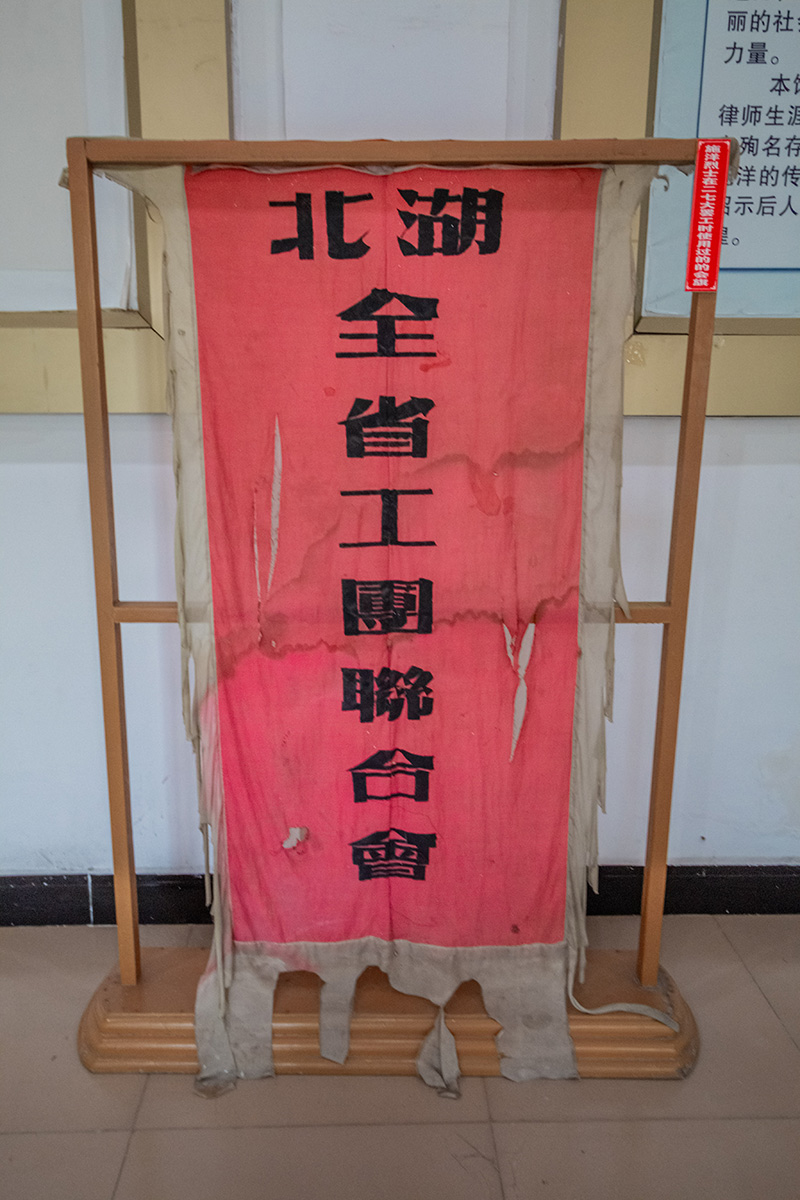 湖北
全省工團聯合會
施洋烈士在二七大罢工时使用过的的会旗
丽的社会
力量。
本
律师生涯
殉名存
洋的传
示后人